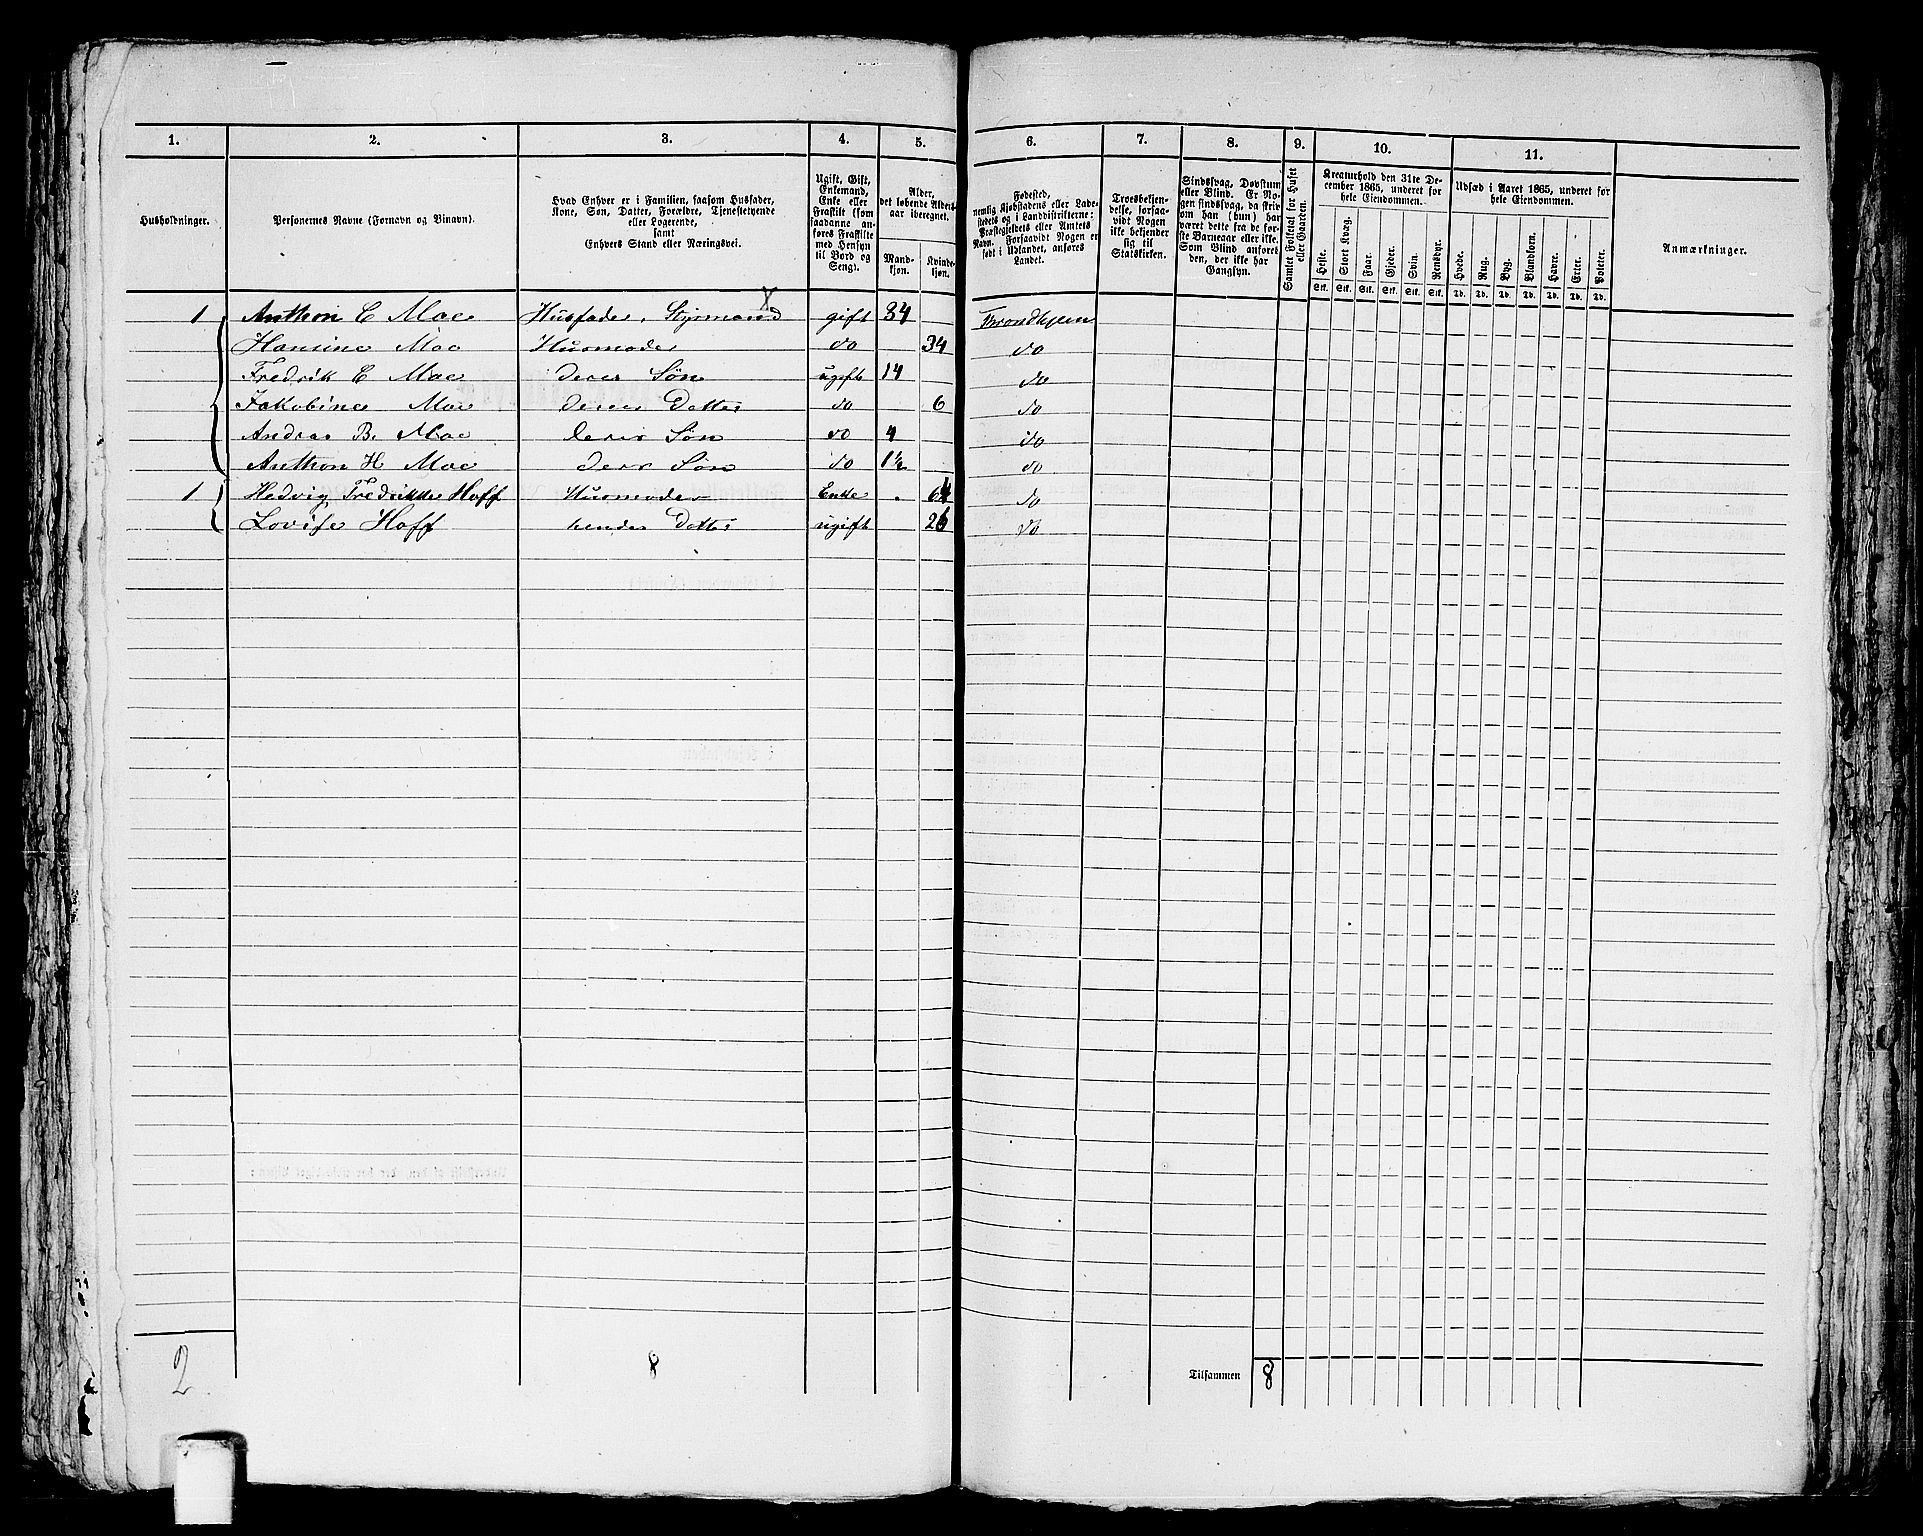 1. 2. 3. 4. 5. 6. 7. 8. 9. 10. 11.
Husholdninger.
Personernes Navne (Fornavn og Binavn).
Hvad Enhver er i Familien, saasom Husfader,
Kone, Søn, Datter, Forældre, Tjenestetyende
eller Logerende,
samt
Enhvers Stand eller Næringsvei.
Ugift, Gift,
Enkemand,
Enke eller
Fraskilt (som
saadanne an-
føres Fraskilte
med Hensyn
til Bord og
Seng).
Alder,
det løbende Alders-
aar iberegnet.
Mand-
kjøn.
Kvinde-
kjøn.
Fødested,
nemlig Kjøbstadens eller Lade-
stedets og i Landdistrikterne:
Præstegjeldets eller Amtets
Navn. Forsaavidt Nogen er
født i Udlandet, anføres
Landet.
Troesbekjen-
delse, forsaa-
vidt Nogen
ikke bekjender
sig til
Statskirken.
Sindssvag, Døvstum
eller Blind. Er No-
gen sindssvag, da skriv
om han (hun) har
været dette fra de før-
ste Barneaar eller ikke.
Som Blind anføres
den, der ikke har
Gangsyn.
Samlet Folketal for Huset
eller Gaarden.
Kreaturhold den 31te De-
cember 1865, underet for
hele Eiendommen.
Heste. Stort Kvæg. Faar. Gjeder. Svin. Rensdyr.
Stk. Stk. Stk. Stk. Stk. Stk.
Udsæd i Aaret 1865, underet for
hele Eiendommen.
Hvede. Rug. Byg. Blandkorn. Havre. Erter. Poteter.
Td. Td. Td. Td. Td. Td. Td.
Anmærkninger.
1 Anthon C Moe Husfader, Styrmand gift 34 Throndhjem
Hansine Moe Husmoder do 34 do
Fredrik C Moe deres Søn ugift 14 do
Jakobine Moe deres Datter do 6 do
Andreas B. Moe deres Søn do 4 do
Anthon H Moe deres Søn do 1½ do
1 Hedvig Fredrikke Hoff Husmoder Enke 64 do
Lovise Hoff hendes Datter ugift 26 do
2 8 Tilsammen 8